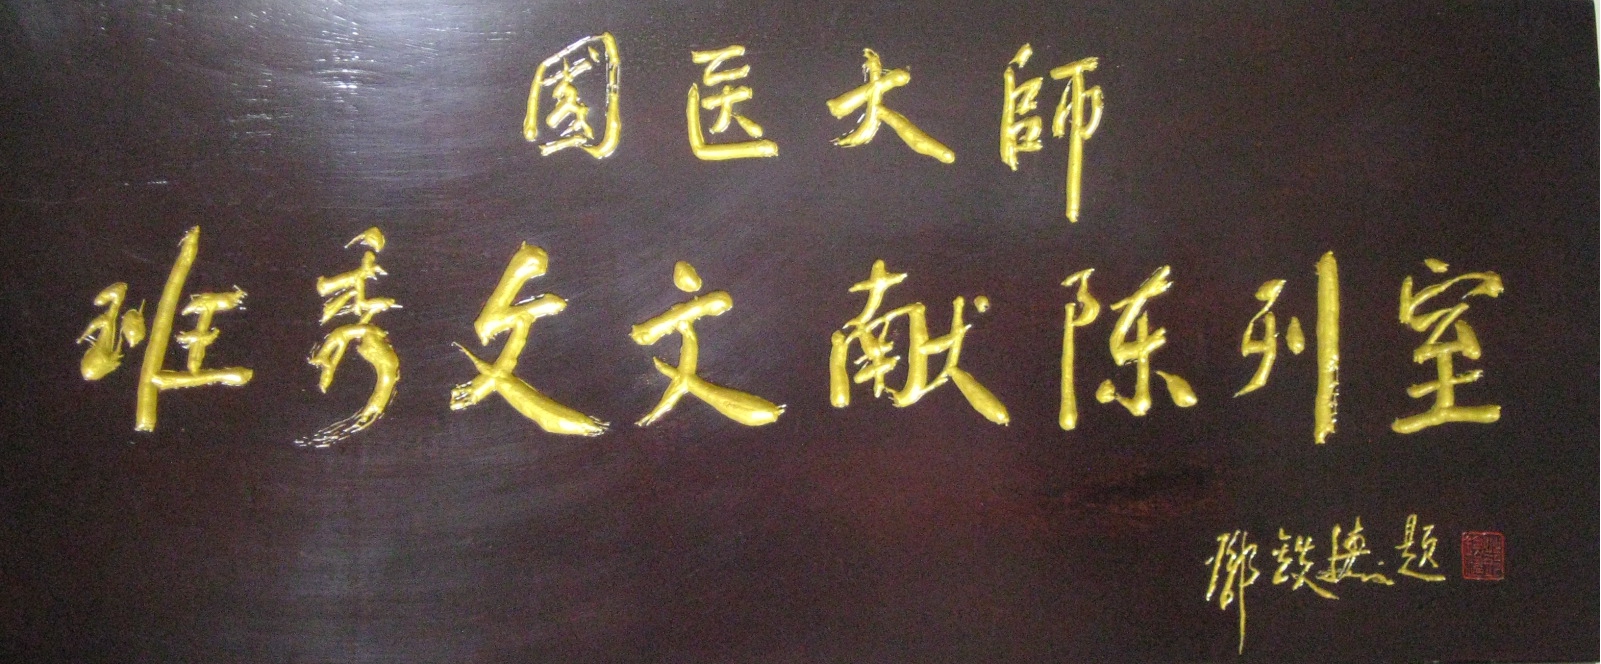 國医大師
班秀文文献陈列室
鄧鐵濤题